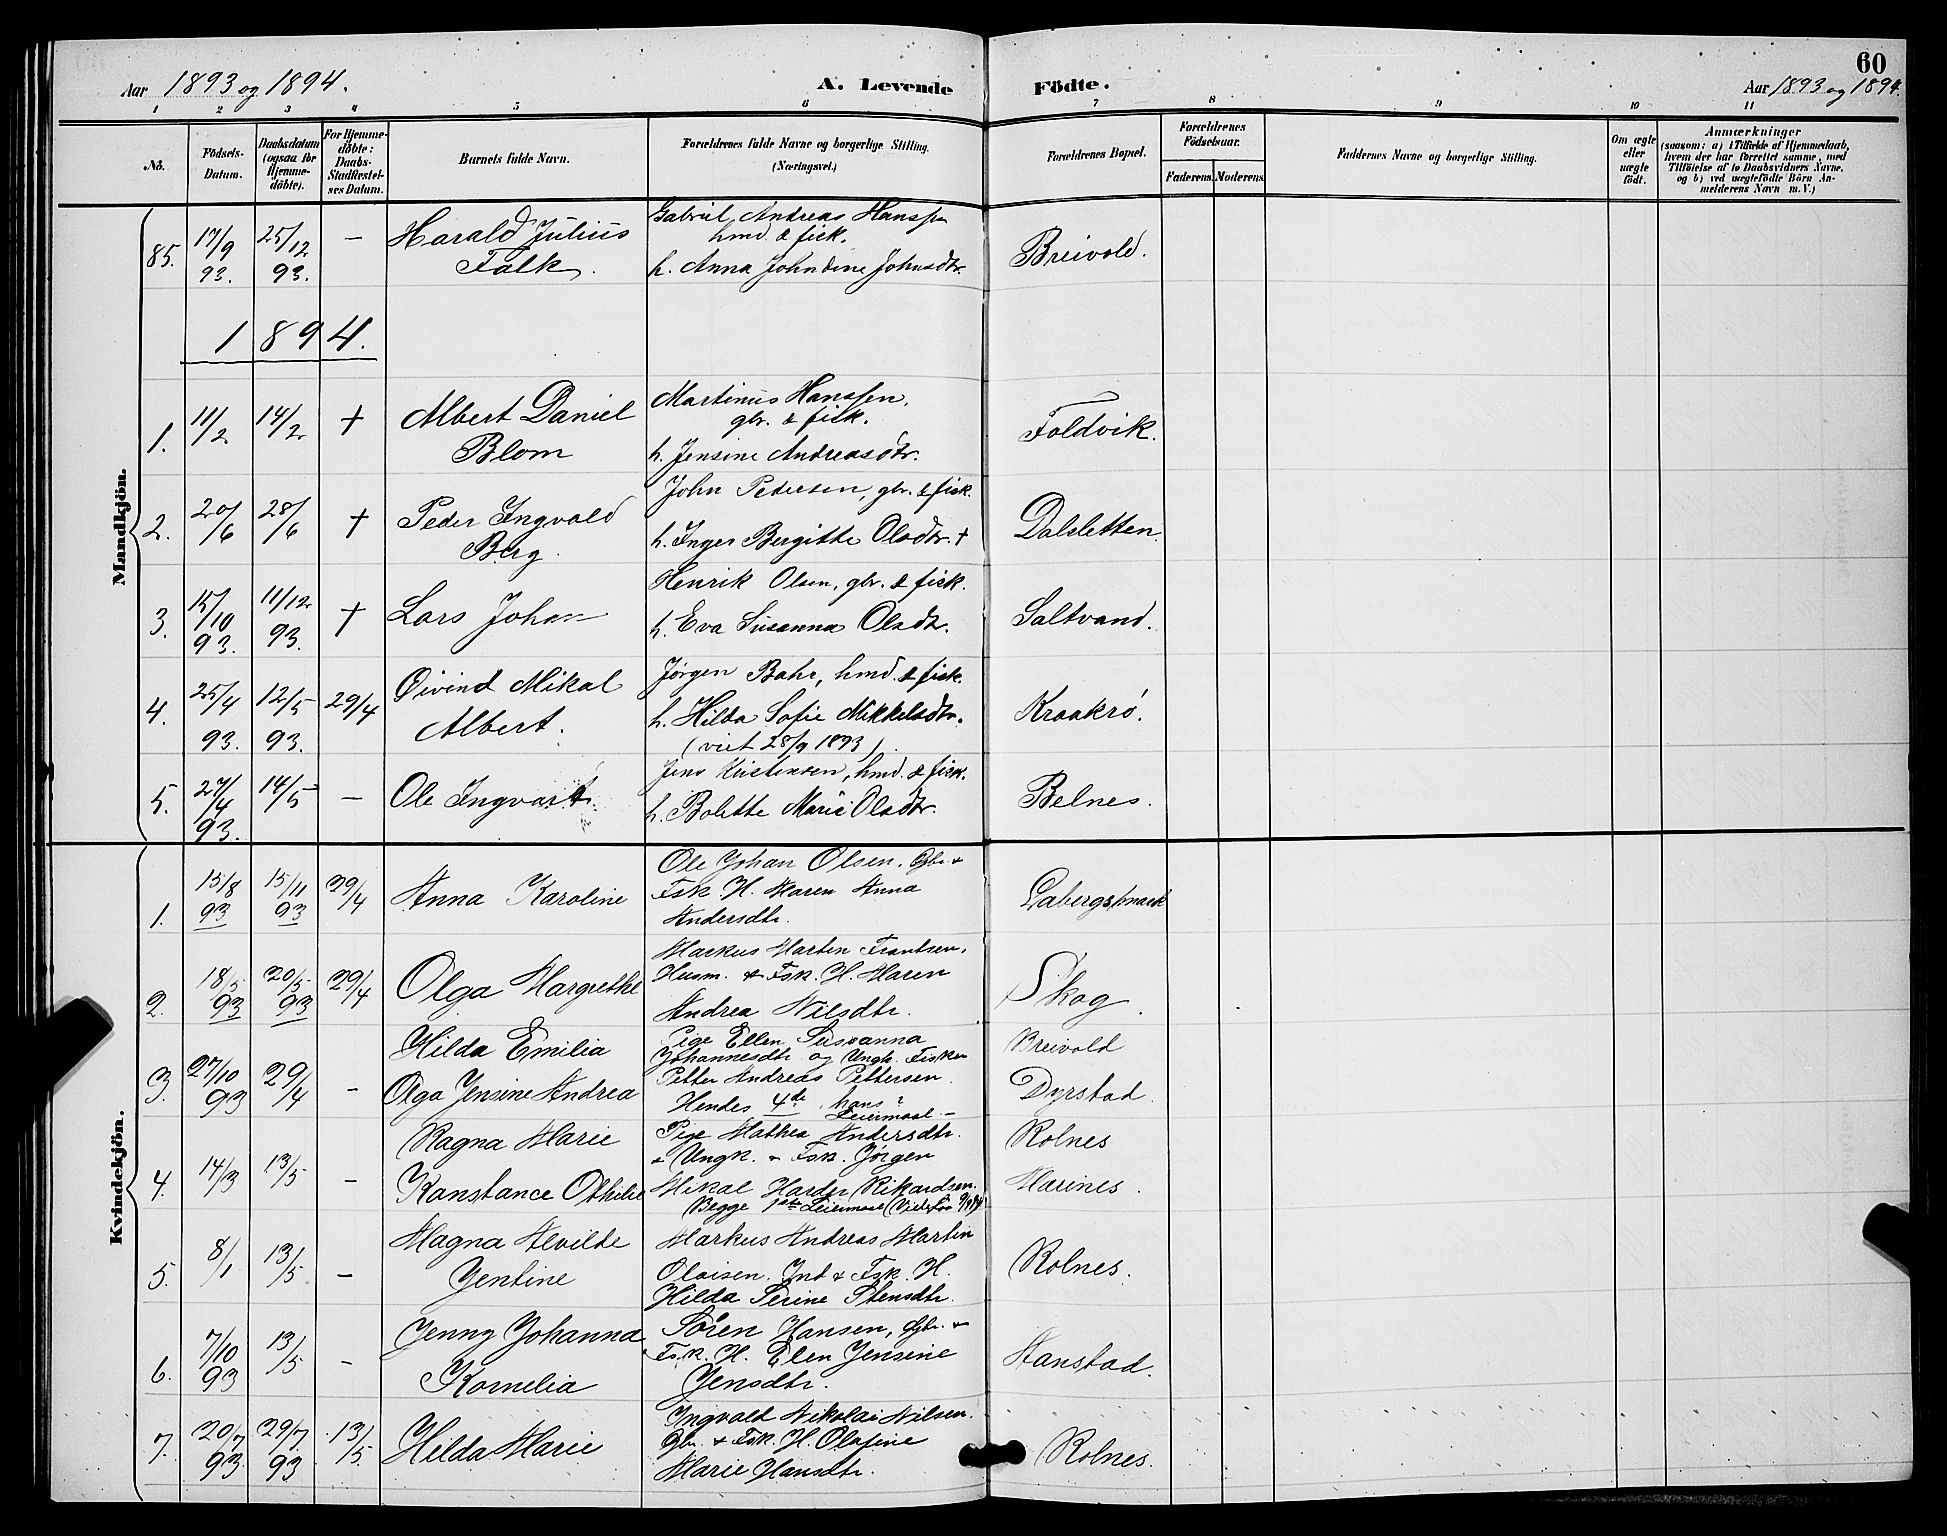 60
Aar 1893 og 1894.
A. Levende Födte.
Aar 1893 og 1894.
1 2 3 4 5 6 7 8 9 10 11
No.
Födsels-Datum.
Daabsdatum (ogsaa for Hjemme-döbte).
For Hjemme-döbte: Daabs-Stadfæstel-ses Datum.
Barnets fulde Navn.
Forældrenes fulde Navne og borgerlige Stilling. (Næringsvei.)
Forældrenes Bopæl.
Forældrenes Födselsaar.
Faderens. Moderens.
Faddernes Navne og borgerlige Stilling.
Om ægte eller uægte födt.
Anmærkninger
(saasom: a) i Tilfælde af Hjemmedaab,
hvem der har forrettet samme, med
Tilföielse af to Daabsvidners Navne,
og b) ved uægtefödte Börn An-
melderens Navn m. V.)
Mandkjön.
85. 17/9 93. 25/12 93. — Harald Julius Falk.
Gabriel Andreas Hanssen
hmd. & fisk.
h. Anna Johndine Johnsdtr.
Breivold.
1894.
1. 11/2 14/2 † Albert Daniel Blom
Martinus Hanssen,
gbr. & fisk.
h. Jensine Andreasdtr.
Foldvik.
2. 20/6 28/6 † Peder Ingvald Berg.
John Pedersen, gbr. & fisk.
h. Inger Bergitte Olsdtr. †
Dalsletten.
3. 15/10 93. 11/12 93. † Lars Johan
Henrik Olsen, gbr. & fisk.
h. Eva Susanna Olsdtr.
Saltvand.
4. 25/4 93. 12/5 93. 29/4 Øivind Mikal Albert.
Jørgen Bahr, hmd. & fisk.
h. Hilda Sofie Mikkelsdtr.
(viet 28/9 1893).
Kraakrø.
5. 27/4 93. 14/5 — Ole Ingvart.
Jens Kristensen, hmd. & fisk.
h. Bolette Marie Olsdtr.
Belnes.
Kvindekjön.
1. 15/8 93 15/11 93 29/4 Anna Karoline
Ole Johan Olsen, Gbr. &
Fsk. H. Maren Anna
Andersdtr.
2. 18/5 93 20/5 93 29/4 Olga Margrethe
Markus Martin Frantsen,
Husm. & Fsk. H. Maren
Andrea Nilsdtr.
Skog.
3. 27/10 93 29/4 - Hilda Emilia
Olga Jensine Andrea
Pige Ellen Susvanna
Johannesdtr og Ungk. Fisker
Petter Andreas Pettersen.
Hendes 4de, hans ? Leiermaal.-
Breivold
Dyrstad.
4. 14/3 13/5 - Ragna Marie
Konstance Othilie
Pige Mathea Andersdtr.
& Ungk. & Fsk. Jörgen
Mikal Harder Rikardsen.
Begge 1ste Leiermaal
Rolnes
Marines.
5. 8/1 13/5 - Magna Alvilde
Jentine
Markus Andreas Martin
Olaisen. Ind & Fsk. H.
Hilda Serine Stensdtr.
Rolnes.
6. 7/10 93 13/5 - Jenny Johanna
Kornelia
Sören Hansen, Gbr. &
Fsk. H. Elen Jensine
Jensdtr.
Hanstad.
7. 20/7 93 29/7 93 13/5. Hilda Marie
Ingvald Nikolai Nilsen.
Gbr. & Fsk. H. Olafine
Marie Hansdtr.
Rolnes.